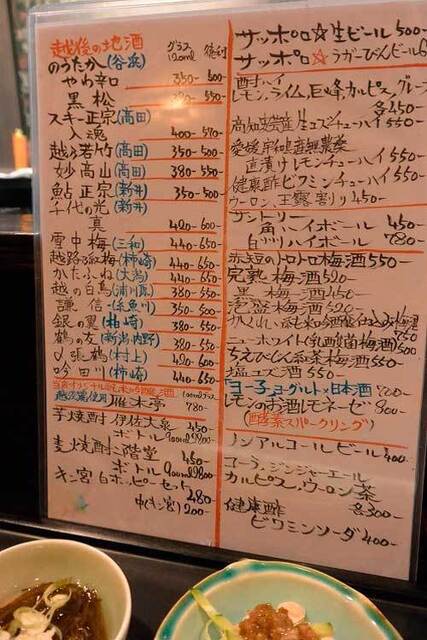 越後の地酒 グラス 120ml 徳利
のうたか(谷浜)
やや辛口 350-600-
黒松 550-
スキー正宗(高田)
入魂 400-570-
越乃若竹(高田) 350-500
妙高山(高田) 380-550
鮎正宗(新井) 350-500
千代の光(新井)
真 420-600-
雪中梅(三和) 440-650
越路乃紅梅(柿崎) 440-650
かたふね(大潟) 440-650
越の白鳥(浦川原) 380-550
謙信(糸魚川) 350-500
銀の翼(柿崎) 380-550
鶴の友(新潟内野) 380-550
〆張鶴(村上) 420-600
吟田川(柿崎) 440-650
雁木亭 780-
芋焼酎 伊佐大泉 450-
ボトル900ml2800-
麦焼酎 二階堂 450-
ボトル900ml2800
キン宮 白ホッピーセット 480-
中(キン宮)200-
サッポロ☆生ビール 500-
サッポロ☆ラガーびんビール6
酎ハイ
レモン、ライム、巨峰、カルピス、グレー
各450-
高知安芸産生ユズチューハイ550-
愛媛岩城島産無農薬
直漬けレモンチューハイ550-
健康酢ビワミンチューハイ550-
ウーロン、玉露割り450-
サントリー
角ハイボール 450-
白州ハイボール 780-
赤短のトロトロ梅酒550-
完熟梅酒520-
黒梅酒450-
泡盛梅酒520-
ニューホワイト(乳酸菌梅酒)500
ちえびじん紅茶梅酒550-
塩ユズ酒550-
ヨー子ヨーグルト×日本酒 700-
レモンのお酒レモネーゼ 800-
(酵素スパークリング)
ノンアルコールビール 400-
コーラ、ジンジャーエール
カルピス、ウーロン茶
各300-
健康酢
ビワミンソーダ 400-